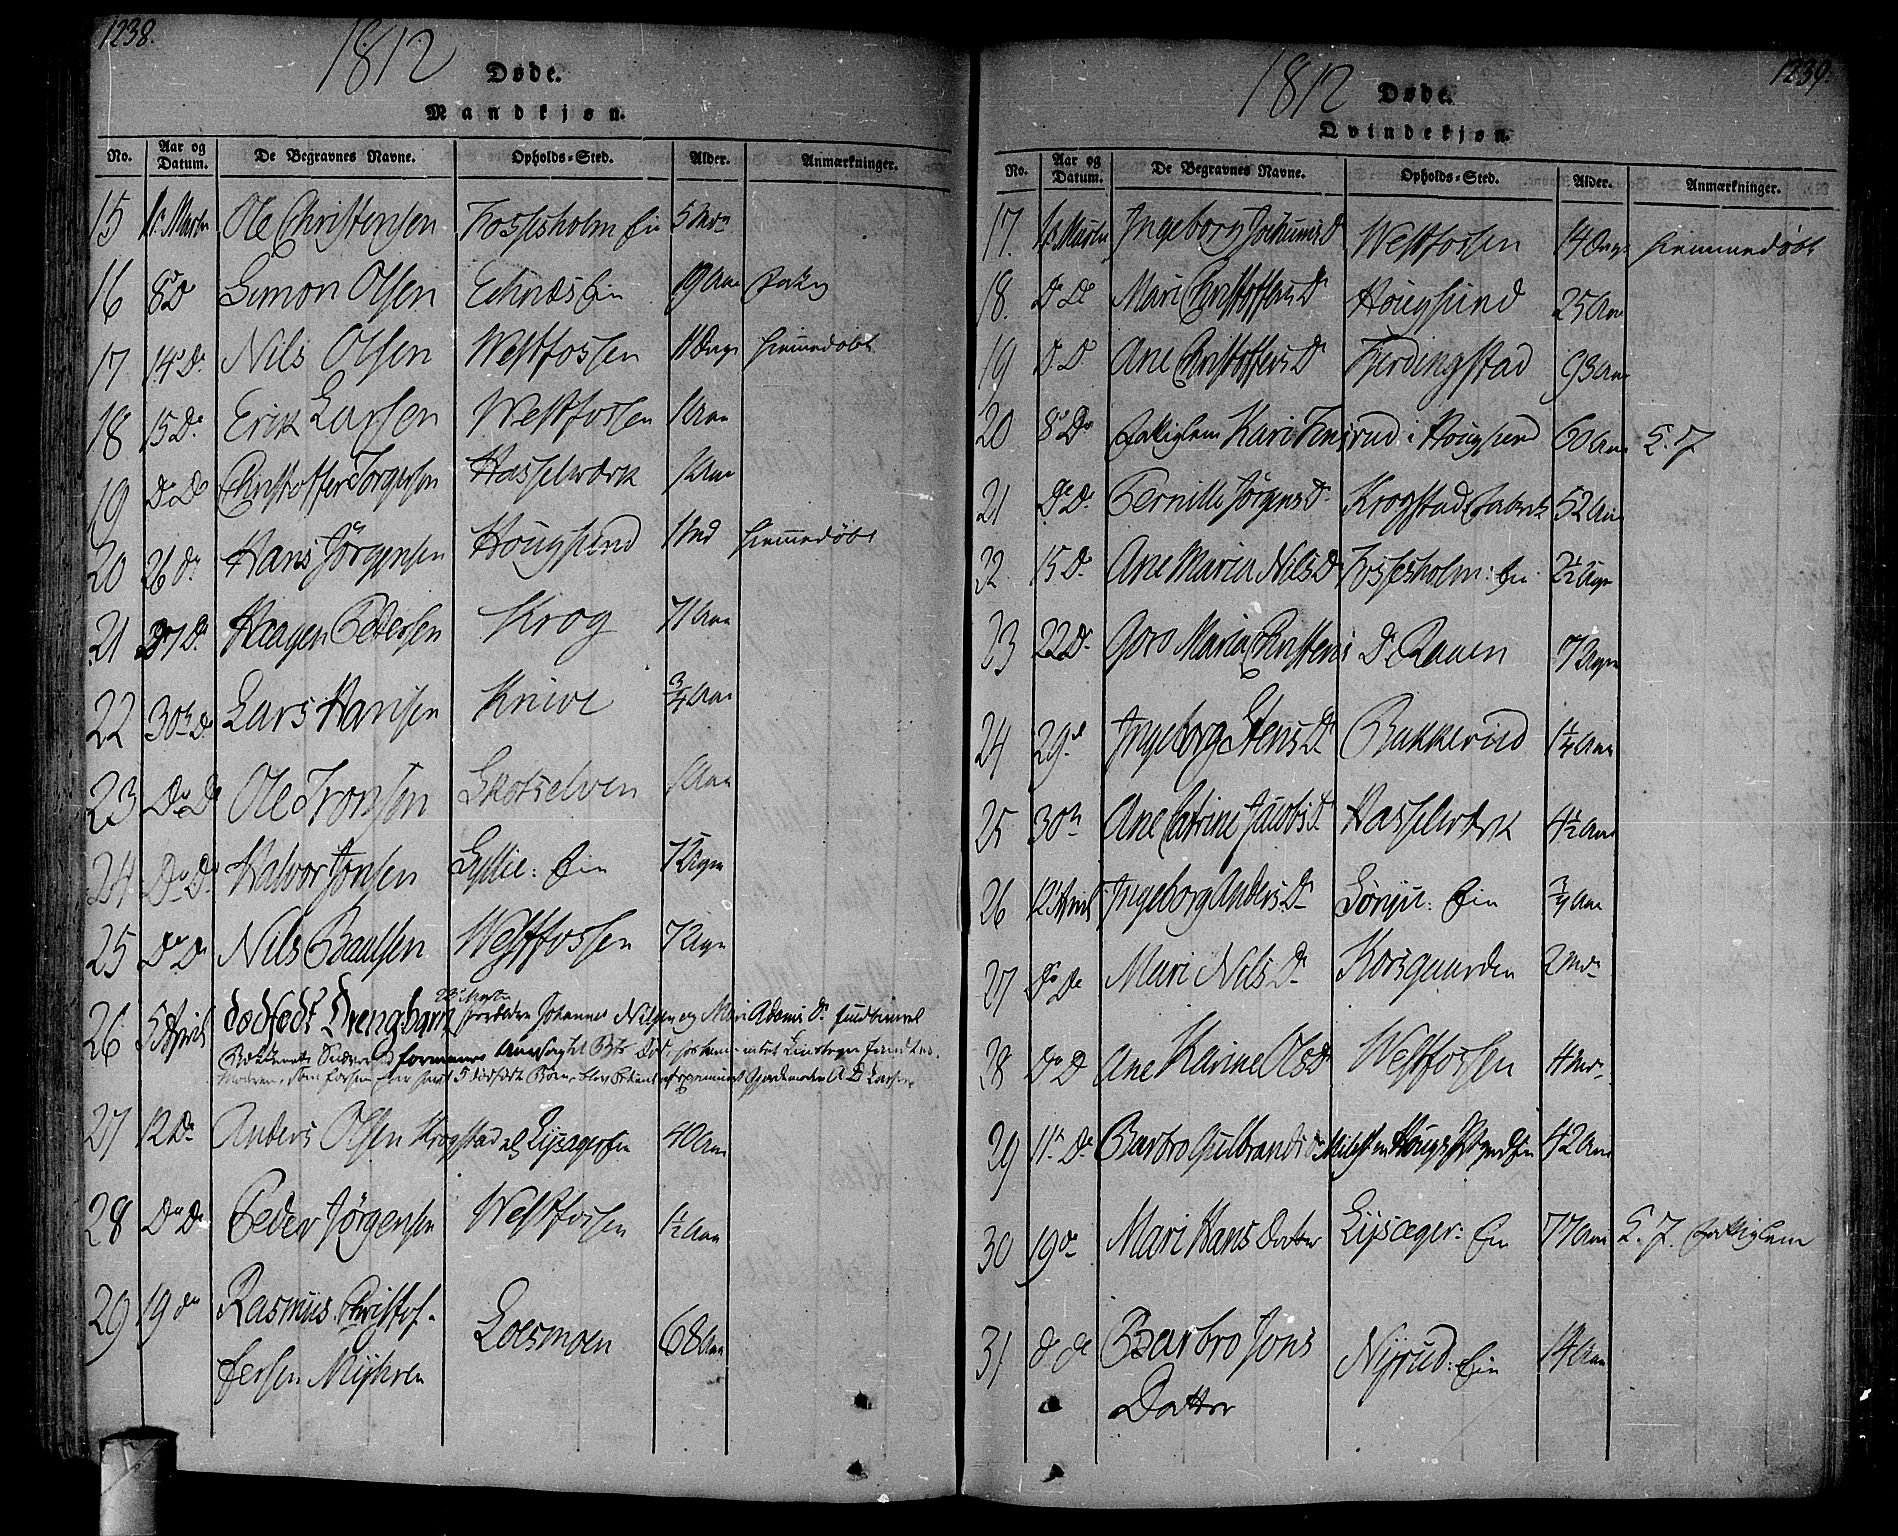 1238.
1812
Døde.
Mandkjøn.
No. Aar og Datum. De Begravnes Navne. Opholds=Sted. Alder. Anmærkninger.
15 1. Martii Ole Christensen Fossesholm Ein 5 Mdr
16 8 D Simon Olsen Ein 19 Aar
17 14 Do Nils Olsen Westfossen 11 Dage hiemmedøbt
18 15 Do Erik Larsen Westfossen 1 Aar
19 Do Do Christoffer Torgersen Hasselwærk 1 Aar
20 26 Do Hans Jørgensen Hougsund 1 Md hiemmedøbt
21 27 Do Haagen Pedersen Krog 71 Aar
22 30 Do Lars Hansen Knive 3/4 Aar
23 Do Do Ole Tronsen Skotselven 1 Aar
24 Do Do Halvor Jonsen Ein 7 Uger
25 Do Do Nils Paulsen Westfossen 7 Uger
26 5 April dødfødt Drengebarn Forældre Johannes Nilsen og Mari Adams Dr
Moderen, som forhen har havt 5 dødfødte Børn, blev
27 12 Do Anders Olsen Krogstad Ein 40 Aar
28 Do Do Peder Jørgensen Westfossen 1 1/2 Aar
29 19 do Rasmus Christof-
fersen Myhren Loesmoen 68 Aar
1239.
1812
Døde.
Qvindekjøn.
No. Aar og Datum. De Begravnes Navne. Opholds=Sted. Alder. Anmærkninger.
17. 1. Martii Ingeborg Jochums D Westfossen 14 Dage hiemmedøbt
18. Do Do Mari Christoffers Dr Hougsund 25 Aar
19 D. D Ane Christoffers Dr Fierdingstad 93 Aar
20 8 Do Kari i Hougsund 60 Aar
21 Do Do Pernille Jørgens Dr Krogstad 52 Aar
22 15 Do Ane Maria Nils D Fossesholm: Ein 2 1/2 Uger
23 22 Do Goro Maria Christens Dr Raaen 7 Uger
24 29. d Ingeborg Stens Dr Bakkerud 1 1/4 Aar
25 30 Ane Catrine Jacobs D Hasselwærk 4 1/2 Aar
26 12 April Ingeborg Anders Dr Ein 3/4 Aar
27 Do Do Mari Nils Dr Korsgaarden 2 Mdr
28 Do D Ane Karine Ols Dr Westfossen 4 Mdr
29 11 Do Barbro Gulbrands Dr 42 Aar
30 19 do Mari Hans Datter Ein 77 Aar
31 do do Barbro Jons
Datter Nyrud: Ein 14 Aar